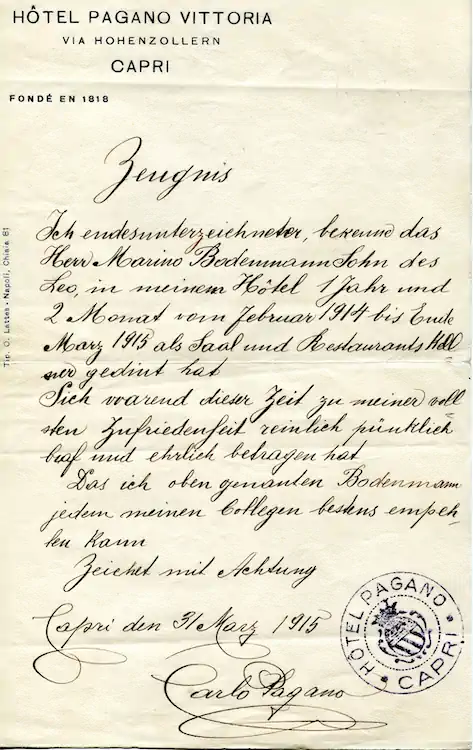 HÔTEL PAGANO VITTORIA
VIA HOHENZOLLERN
CAPRI
FONDÉ EN 1818
Zeugnis
Ich endesunterzeichneter, bekenne das
Herr Marino Bodenmann Sohn des
Leo, in meinem Hôtel 1 Jahr und
2 Monat vom Februar 1914 bis Ende
Marz 1915 als Saal und Restaurants Kell
ner gedint hat
Sich warend dieser Zeit zu meiner voll
sten Zufriedenheit reinlich pünklich
braf und ehrlich betragen hat
Das ich oben genanten Bodenmann
jedem meinen Collegen bestens empeh
len kann
Zeichet mit Achtung
Capri den 31 Marz 1915
Carlo Pagano
HÔTEL PAGANO
CAPRI
Tip. C. Lattes - Napoli, Chiaia 61